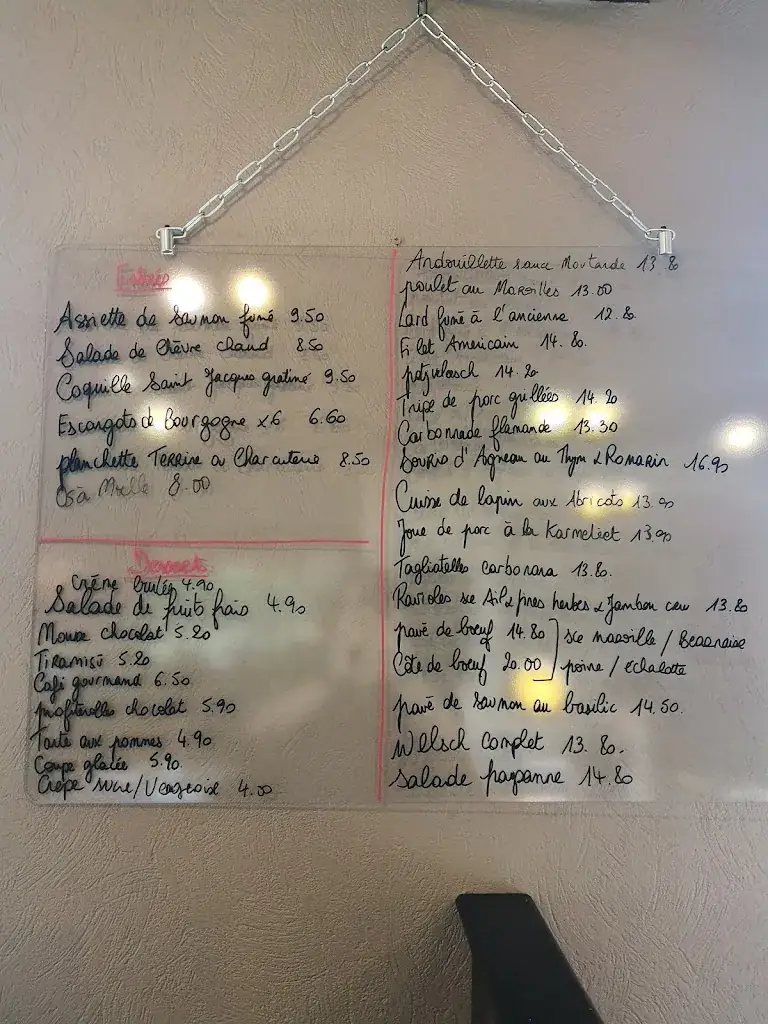 Entrées
Assiette de saumon fumé 9.50
Salade de Chèvre chaud 8.50
Coquille Saint Jacques gratiné 9.50
Escargots de Bourgogne x6 6.60
planchette Terrine ou Charcuterie 8.50
Os à Moelle 8.00
Desserts
Crème brulée 4.90
Salade de fruits frais 4.90
Mousse chocolat 5.20
Tiramisu 5.20
Café gourmand 6.50
profiterolles chocolat 5.90
Tarte aux pommes 4.90
Coupe glacée 5.90
Crêpe sucre/Vergeoise 4.00
Andouillette sauce Moutarde 13.80
poulet au Maroilles 13.00
Lard fumé à l'ancienne 12.80
Filet Americain 14.80.
potjevleesch 14.20
Tripe de porc grillées 14.20
Carbonnade flamande 13.30
Souris d'Agneau au Thym & Romarin 16.90
Cuisse de lapin aux Abricots 13.90
Joue de porc à la Karmeliet 13.90
Tagliatelles carbonara 13.80.
Ravioles sce Ail & fines herbes & Jambon cru 13.80
pavé de boeuf 14.80 ] sce maroille / Bearnaise
Côte de boeuf 20.00 poivre / echalotte
pavé de saumon au basilic 14.50.
Welsch complet 13.80.
salade paysanne 14.80